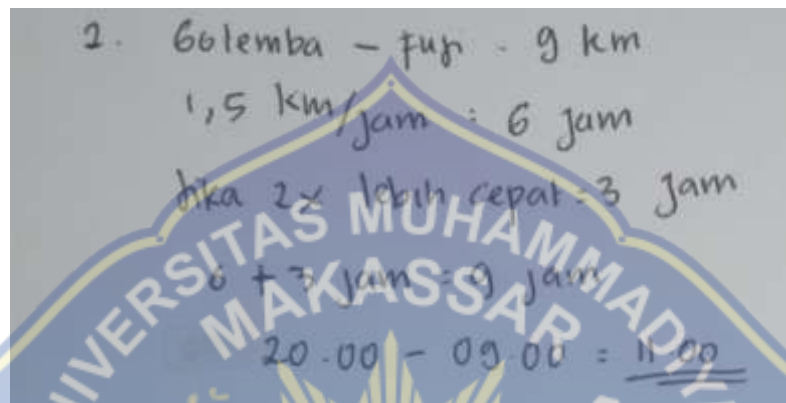 2. Golemba - Fuji = 9 km
1,5 km/jam = 6 jam
Jika 2x lebih cepat = 3 Jam
6 + 3 jam = 9 jam
20.00 - 09.00 = 11.00
UNIVERSITAS MUHAMMADIYA
MAKASSAR